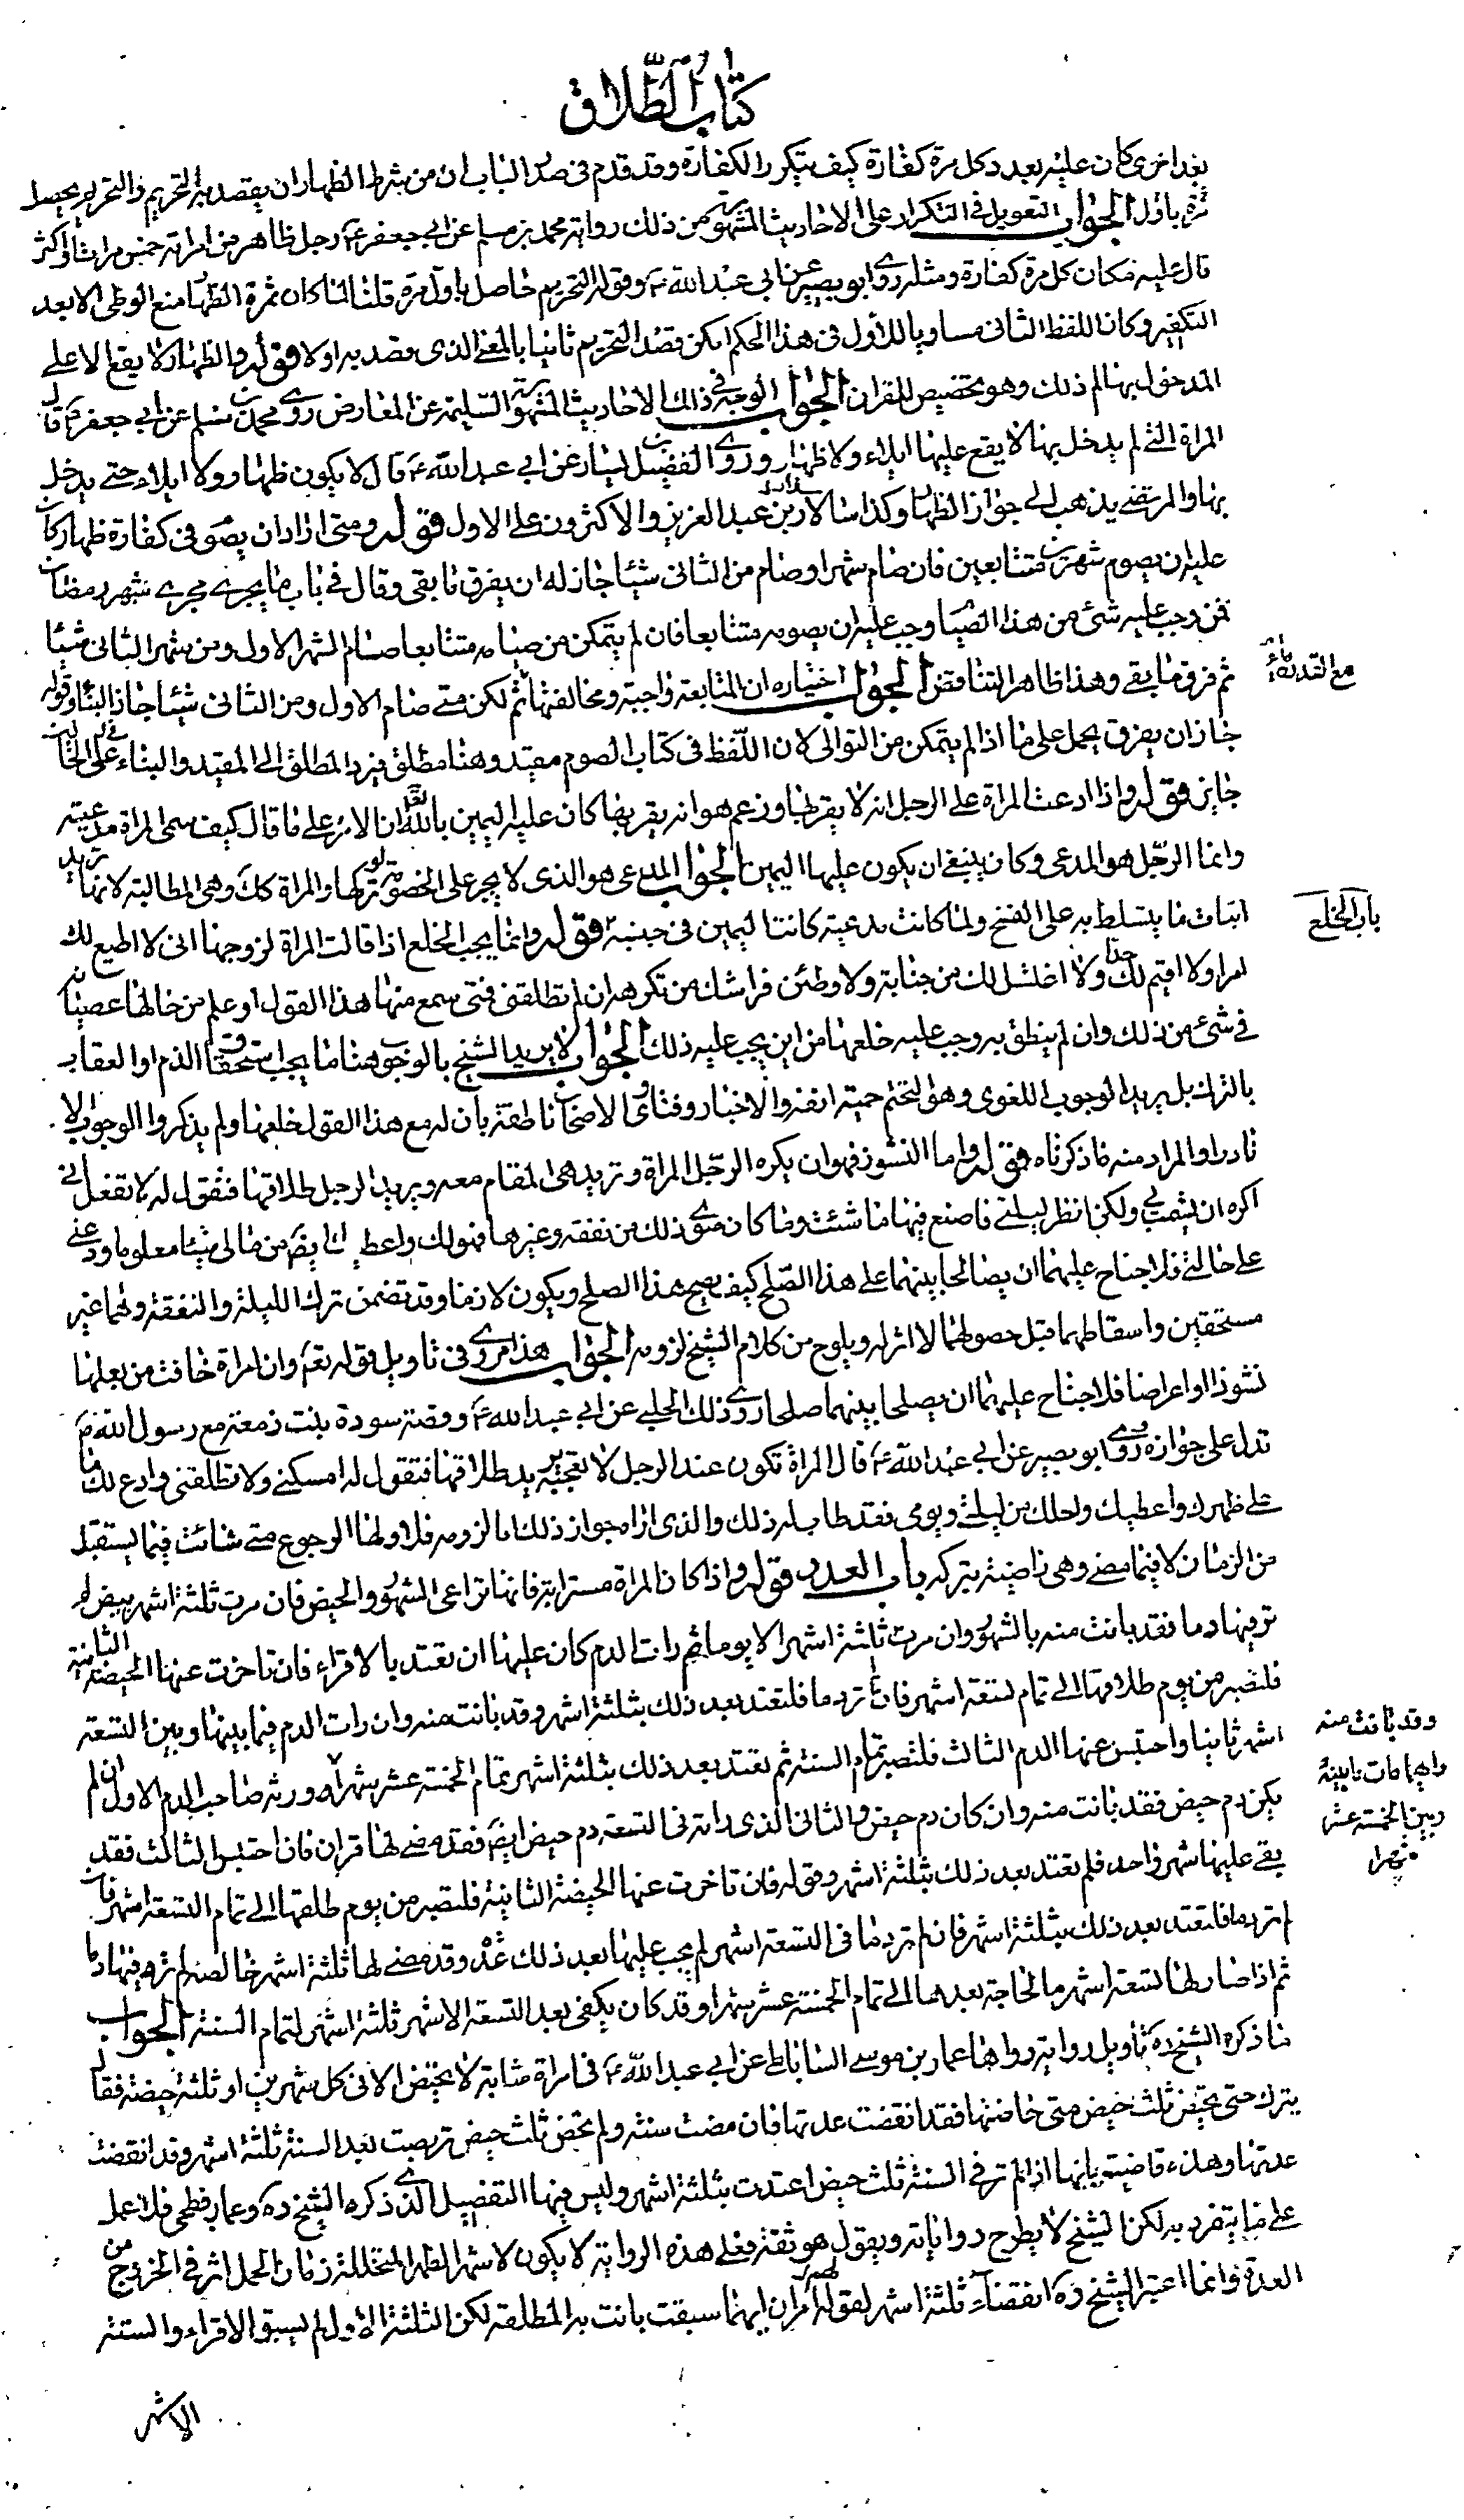 كتاب الطلاق
بعد اخرى كان عليه بعدد كل مرة كفارة كيف يتكرر الكفارة وقد قدم فى صدر الباب ان من شرط الظهار ان يقصد به التحريم والتحريم يحصل
مرة باول الجواب التعويل فى التكرار على الاحاديث المشهورة من ذلك رواية محمد بن مسلم عن ابى جعفر ع رجل ظاهر من امراته خمس مرات او اكثر
قال عليه مكان كل مرة كفارة ومثله روى ابو بصير عن ابى عبد الله ع وقوله التحريم حاصل باول مرة قلنا لما كان ثمرة الظهار منع الوطى الا بعد
التكفير وكان اللفظ الثانى مساويا للاول فى هذا الحكم امكن قصد التحريم ثانيا بالمعنى الذى قصد به اولا قوله والظهار لا يقع الا على
المدخول بها لم ذلك وهو تخصيص للقران الجواب الوجه فى ذلك الاحاديث المشهورة السليمة عن المعارض روى محمد بن مسلم عن ابى جعفر ع قال
المراة التى لم يدخل بها لا يقع عليها ايلاء ولا ظهار وروى الفضيل بن يسار عن ابى عبد الله ع قال لا يكون ظهار ولا ايلاء حتى يدخل
بها والمرتضى يذهب الى جواز الظهار وكذا سالار بن عبد العزيز والاكثرون على الاول قوله ومتى اراد ان يصوم فى كفارة ظهار كان
عليه ان يصوم شهرين متتابعين فان صام شهرا وصام من الثانى شيئا جاز له ان يفرق ما بقى وقال فى باب ما يجرى مجرى شهر رمضان
فمن وجب عليه شئ من هذا الصيام وجب عليه ان يصومه متتابعا فان لم يتمكن من صيامه متتابعا صام الشهر الاول ومن شهر الثانى شيئا
ثم فرق ما بقى وهذا ظاهر التناقض الجواب اختياره ان المتابعة واجبة ومخالفتها اثم لكن متى صام الاول ومن الثانى شيئا جاز البناء وقوله
مع القدرة
جاز ان يفرق يحمل على ما اذا لم يتمكن من التوالى لان اللفظ فى كتاب الصوم مقيد وهنا مطلق فيرد المطلق الى المقيد والبناء على الحالين
جايز قوله واذا ادعت المراة على الرجل انه لا يقربها وزعم هو انه يقربها كان عليه اليمين بالله ان الامر على ما قال كيف سمى المراة مدعية
وانما الرجل هو المدعى وكان ينبغى ان يكون عليها اليمين الجواب المدعى هو الذى لا يجبر على الخصومة لو تركها والمراة كك وهى المطالبة لانها تريد
اثبات ما يتسلط به على الفسخ ولما كانت مدعية كانت اليمين فى جنبته قوله وانما يجب الخلع اذا قالت المراة لزوجها انى لا اطيع لك
باب الخلع
امرا ولا اقيم لك حدا ولا اغتسل لك من جنابة ولاوطئن فراشك من تكرهه ان لم تطلقنى فمتى سمع منها هذا القول او علم من حالها عصيانه
فى شئ من ذلك وان لم ينطق به وجب عليه خلعها من اين يجب عليه ذلك الجواب لا يريد الشيخ بالوجوب هنا ما يجب استحقاق الذم او العقاب
بالترك بل يريد الوجوب اللغوى وهو التحتم حمية انفة والاخبار وفتاوى الاصحاب ناطقة بان له مع هذا القول خلعها ولم يذكروا الوجوب الا
نادرا والمراد منه ما ذكرناه قوله واما النشوز فهو ان يكره الرجل المراة وتريد هى المقام معه ويريد الرجل طلاقها فتقول له لا تفعل انى
اكره ان يشمت بى ولكن انظر ليلتى فاصنع فيها ما شئت وما كان سوى ذلك من نفقة وغيرها فهو لك واعطيك ايضا من مالى شيئا معلوما ودعنى
على حالتى فلا جناح عليهما ان يصالحا بينهما على هذا الصلح كيف يصح هذا الصلح ويكون لازما وقد تضمن ترك الليلة والنفقة وهما غير
مستحقين واسقاطهما قبل حصولهما لا اثر له ويلوح من كلام الشيخ لزومه الجواب هذا مروى فى تاويل قوله تعم وان امراة خافت من بعلها
نشوزا او اعراضا فلا جناح عليهما ان يصلحا بينهما صلحا روى ذلك الحلبى عن ابى عبد الله ع وقصة سودة بنت زمعة مع رسول الله ص
تدل على جوازه وروى ابو بصير عن ابى عبد الله ع قال المراة تكون عند الرجل لا تعجبه يريد طلاقها فتقول له امسكنى ولا تطلقنى وادع لك ما
على ظهرك واعطيك واحلك من ليلتى ويومى فقد طاب له ذلك والذى اراه جواز ذلك اما لزومه فلا ولها الرجوع متى شائت فيما يستقبل
من الزمان لا فيما مضى وهى راضية بتركه باب العدد قوله واذا كان المراة مسترابة فانها تراعى الشهور والحيض فان مرت ثلثة اشهر بيض لم
تر فيها دما فقد بانت منه بالشهور وان مرت ثلثة اشهر الا يوما ثم رات الدم كان عليها ان تعتد بالاقراء فان تاخرت عنها الحيضة الثانية
فلتصبر من يوم طلاقها الى تمام تسعة اشهر فان لم تر دما فلتعتد بعد ذلك بثلثة اشهر وقد بانت منه وان رات الدم فيما بينها وبين التسعة
اشهر ثانيا واحتبس عنها الدم الثالث فلتصبر تمام السنة ثم تعتد بعد ذلك بثلثة اشهر تمام الخمسة عشر شهرا وورثه صاحب الدم الاول ان لم
وقد بانت منه
وايهما مات ما بينه
وبين الخمسة عشر
شهرا
يكن دم حيض فقد بانت منه وان كان دم حيض والثانى الذى راته فى التسعة دم حيض ايضا فقد مضى لها قران فان احتبس الثالث فقد
بقى عليها شهر واحد فلم تعتد بعد ذلك بثلثة اشهر وقوله فان تاخرت عنها الحيضة الثانية فلتصبر من يوم طلقها الى تمام التسعة اشهر فان
لم تر دما فلتعتد بعد ذلك بثلثة اشهر فان لم تر دما فى التسعة اشهر لم يجب عليها بعد ذلك عدة وقد مضى لها ثلثة اشهر خالصة لم تر فيها دما
ثم اذا صار لها تسعة اشهر ما الحاجة بعدها الى تمام الخمسة عشر شهرا وقد كان يكفى بعد التسعة الاشهر ثلثة اشهر لتمام السنة الجواب
ما ذكره الشيخ ره تاويل رواية رواها عمار بن موسى الساباطى عن ابى عبد الله ع فى امراة شابة لا تحيض الا فى كل شهرين او ثلثة حيضة فقال
يترك حتى تحيض ثلث حيض متى حاضتها فقد انقضت عدتها فان مضت سنة ولم تحض ثلث حيض تربصت بعد السنة ثلثة اشهر وقد انقضت
عدتها وهذه قاضية بانها اذا لم تر فى السنة ثلث حيض اعتدت بثلثة اشهر وليس فيها التفصيل الذى ذكره الشيخ ره وعمار فطحى فلا عمل
على ما يتفرد به لكن الشيخ لا يطرح رواياته ويقول هو ثقة فعلى هذه الرواية لا يكون لاشهر الطهر المتخللة زمان الحمل اثر فى الخروج من
العدة وانما اعتبر الشيخ ره انقضاء ثلثة اشهر لقولهم ع امران ايهما سبقت بانت به المطلقة لكن الثلثة الاول لم يسبق الاقراء والستة
الاشهر